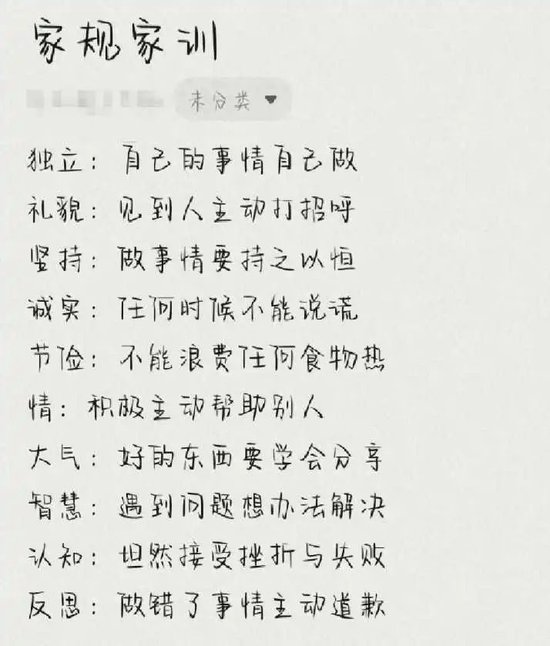 家规家训
未分类
独立：自己的事情自己做
礼貌：见到人主动打招呼
坚持：做事情要持之以恒
诚实：任何时候不能说谎
节俭：不能浪费任何食物热
情：积极主动帮助别人
大气：好的东西要学会分享
智慧：遇到问题想办法解决
认知：坦然接受挫折与失败
反思：做错了事情主动道歉